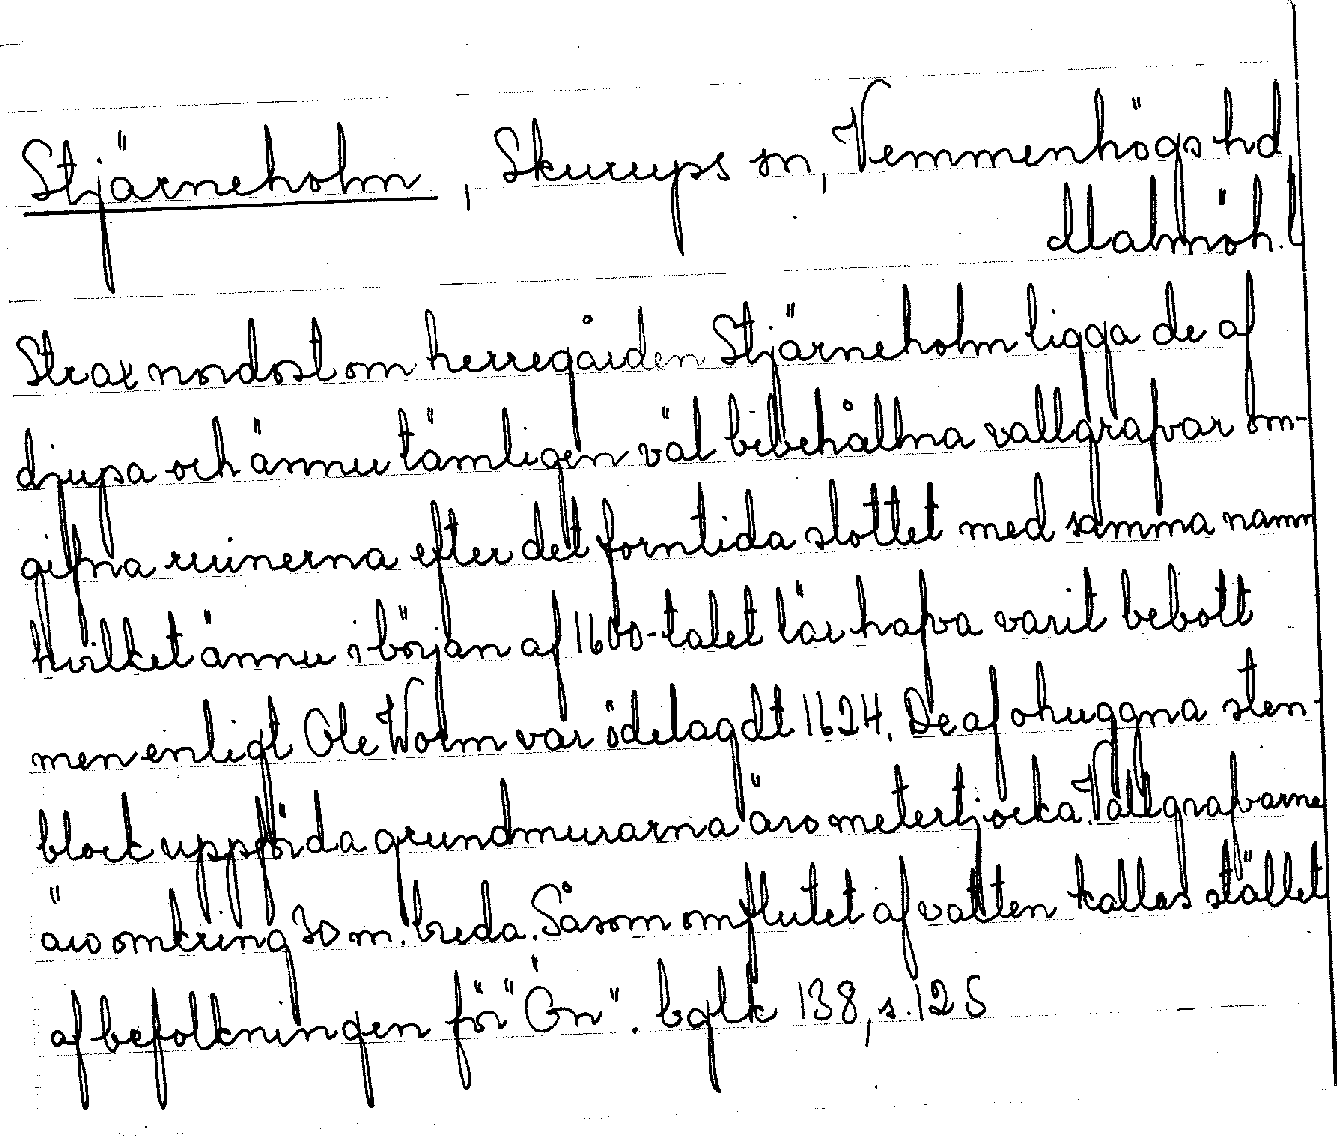 Stjärneholm, Skurups sn, Vemmenhögs hd,
Malmöh. l
Strax nordost om herregården Stjärneholm ligga de af
djupa och ännu tämligen väl bibehållna vallgrafvar om-
gifna ruinerna efter det forntida slottet med samma namn
hvilket ännu i början af 1600-talet lär hafva varit bebott
men enligt Ole Worm var ödelagdt 1624. De af ohuggna sten-
block uppförda grundmurarna äro metertjocka. Vallgrafvarne
äro omkring 30 m. breda. Såsom omflutet af vatten kallas stället
af befolkningen för "Ön". bglk 138, s. 125